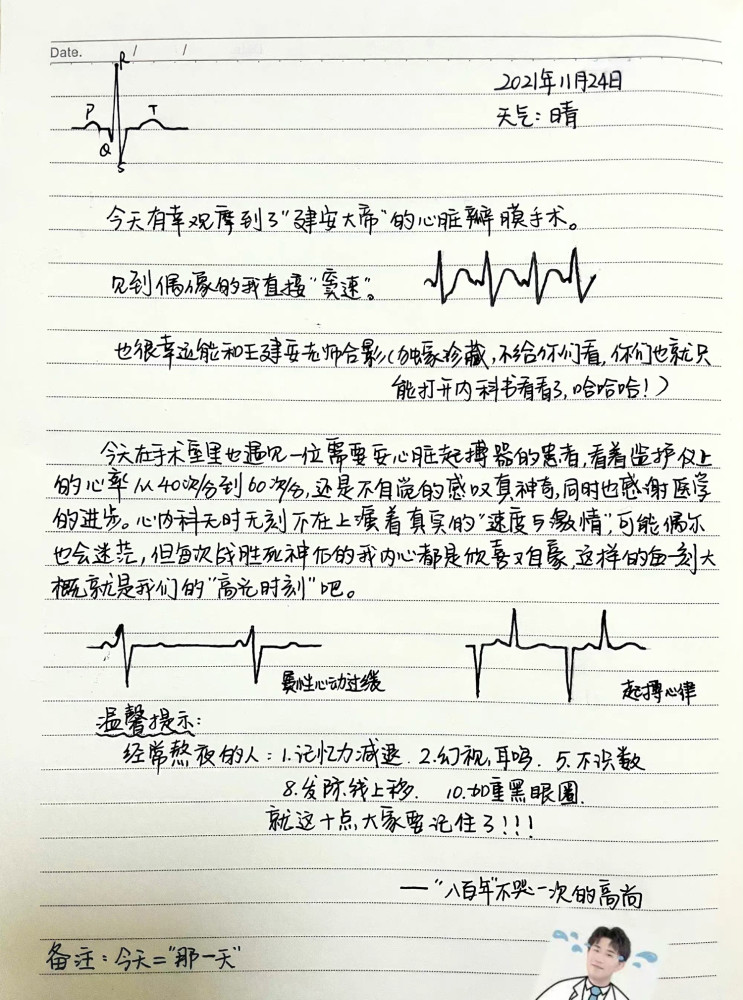 Date. / /
R
P T
Q
S
2021年11月24日
天气：晴
今天有幸观摩到了“建安大帝”的心脏瓣膜手术。
见到偶像的我直接“窦速”。
也很幸运能和王建安老师合影(独家珍藏,不给你们看,你们也就只
能打开内科书看看了,哈哈哈!)
今天在手术室里也遇见一位需要安心脏起搏器的患者,看着监护仪上
的心率从40次/分到60次/分,还是不自觉的感叹真神奇,同时也感谢医学
的进步。心内科无时无刻不在上演着真实的“速度与激情”,可能偶尔
也会迷茫,但每次战胜死神后的我内心都是欣喜又自豪,这样的每一刻大
概就是我们的“高光时刻”吧。
窦性心动过缓
起搏心律
温馨提示:
经常熬夜的人:1.记忆力减退.2.幻视,耳鸣.5.不识数
8.发际线上移.10.加重黑眼圈.
就这十点,大家要记住了!!!
—“八百年”不哭一次的高尚
备注:今天=“那一天”